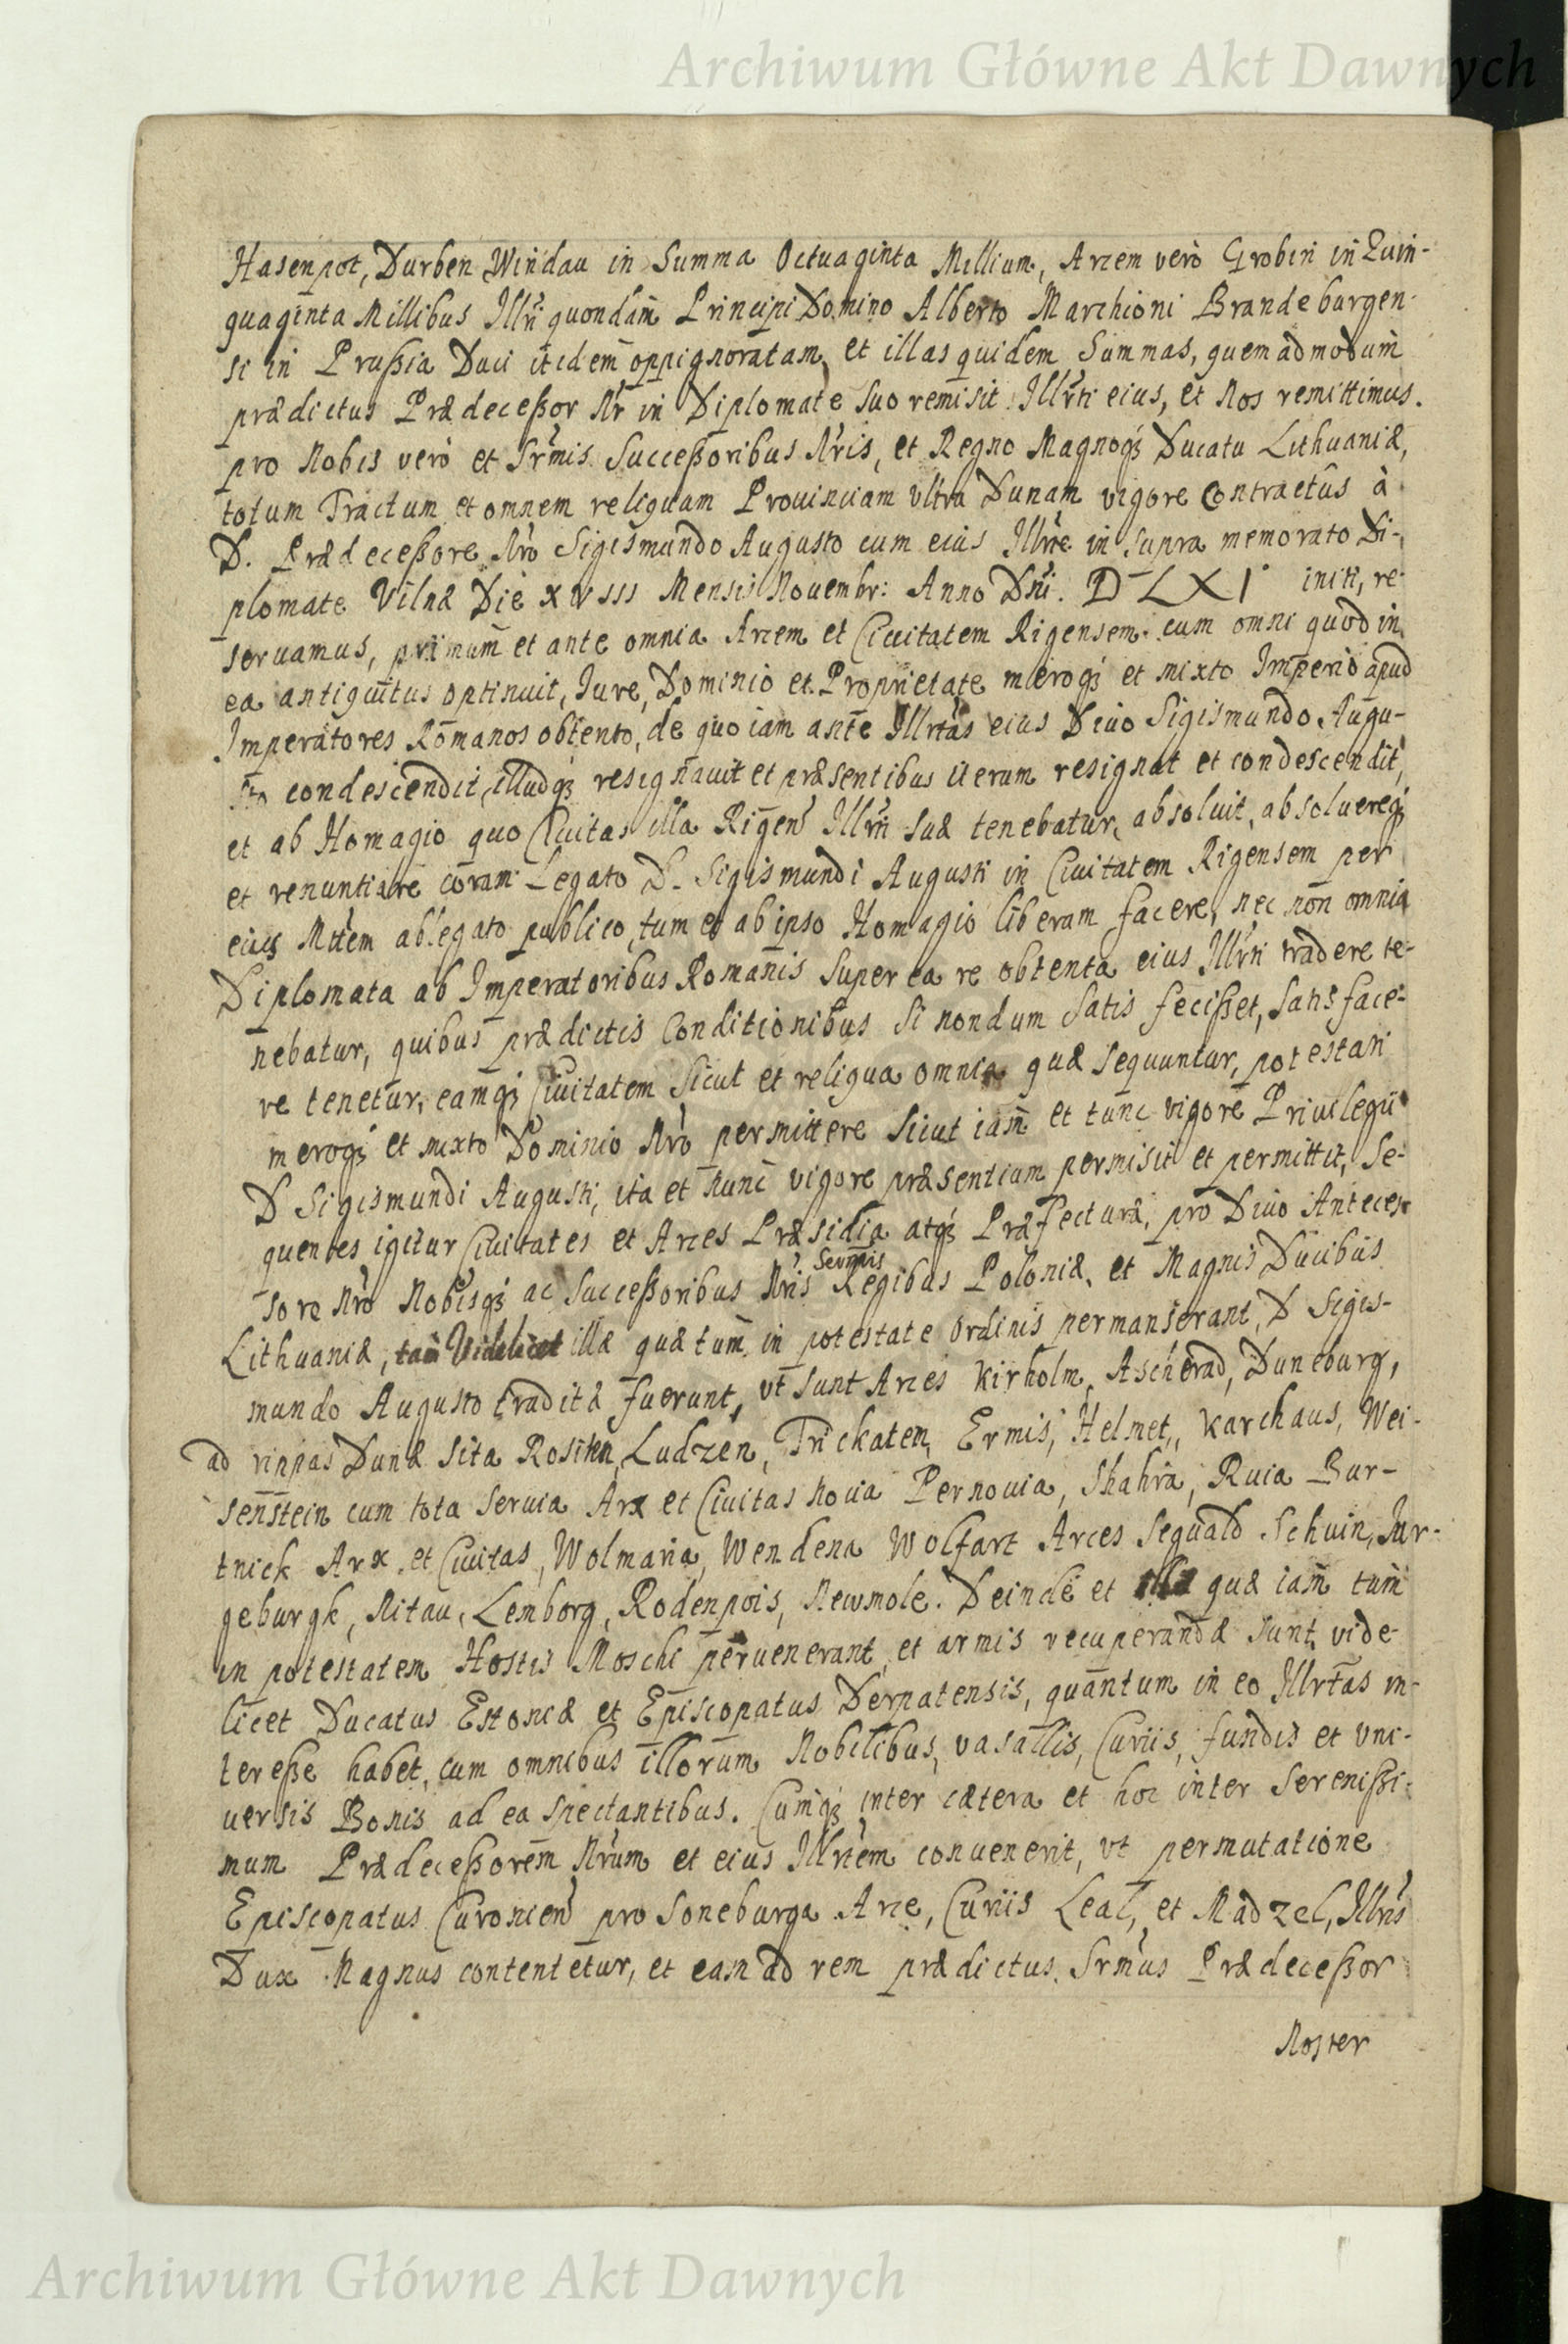 Archiwum Główne Akt Dawnych
Hasenpot, Durben Windau in Summa Octuaginta Millium, Arcem verò Grobin in Quin-
quaginta Millibus Illri quondam Principi Domino Alberto Marchioni Brandeburgen-
si in Prußia Duci itidem oppignoratam, et illas quidem Summas, quemadmodum
prædictus Prædeceßor Nr in Diplomate suo remisit Illrti eius, et Nos remittimus.
pro Nobis verò et Srmis Succeßoribus Nris, et Regno Magnoq3 Ducatu Lithuaniæ,
totum Tractum et omnem reliquam Prouinciam vltra Dunam vigore Contractûs à
D. Prædeceßore Nrò Sigismundo Augusto cum eius Illrte in supra memorato Di-
plomate Vilnæ Die XVIII Mensis Nouembr: Anno Dni. DLXI initi, re-
seruamus, primum et ante omnia Arcem et Ciuitatem Rigensem cum omni quod in
ea antiquitus optinuit, Iure, Dominio et Proprietate meroq3 et mixto Imperio apud
Imperatores Romanos obtento, de quo iam ante Illrtas eius Diuo Sigismundo Augu-
sto condescendit, illudq3 resignauit et præsentibus iterum resignat et condescendit,
et ab Homagio quo Ciuitas illa Rigen Illrti suæ tenebatur, absoluit, absoluereq3
et renuntiare coram Legato D. Sigismundi Augusti in Ciuitatem Rigensem per
eius Mttem ablegato publico, tum et ab ipso Homagio liberam facere, nec non omnia
Diplomata ab Imperatoribus Romanis super ea re obtenta eius Illrti tradere te-
nebatur, quibus prædictis Conditionibus si nondum satis fecißet, satisface-
re tenetur, eamq3 Ciuitatem sicut et reliqua omnia quæ sequuntur, potestati
meroq3 et mixto Dominio Nrò permittere sicut iam et tunc vigore Priuilegii
D Sigismundi Augusti, ita et nunc vigore præsentium permisit et permittit, Se-
quentes igitur Ciuitates et Arces Præsidia atq3 Præfecturæ, pro Diuo Anteces-
sore Nrò Nobisq3 ac Succeßoribus Nris Regibus Poloniæ, et Magnis Ducibus
Lithuaniæ, tam Videlicet illæ quæ tum in potestate Ordinis permanserant, D Sigis-
mundo Augusto traditæ fuerunt, vt sunt Arces Kirholm, Ascherad, Duneburg,
ad rippas Dunæ sita Rositen, Ludzen, Trickaten, Ermis, Helmet, Karchaus, Wei-
senstein cum tota Seruia Arx et Ciuitas noua Pernouia, Shahra, Ruia Bur-
tnick Arx et Ciuitas, Wolmaria, Wendena Wolfart Arces Seguald Schuin, Jur-
geburgk, Nitau, Lemborg, Rodenpois, Newmole. Deinde et illa quæ iam tum
in potestatem Hostis Moschi peruenerant, et armis recuperandæ sunt, vide-
licet Ducatus Estoniæ et Episcopatus Derpatensis, quantum in eo Illrtas in-
tereße habet, cum omnibus illorum Nobilibus, vasallis, Curiis, fundis et vni-
uersis Bonis ad ea spectantibus. Cumq3 inter cætera et hoc inter Serenißi-
mum Prædeceßorem Nrum et eius Illrtem conuenerit, vt permutatione
Episcopatus Curonien pro Soneburga Arce, Curiis Leal, et Madzel, Illris
Dux Magnus contentetur, et eam ad rem prædictus Srmus Prædeceßor
Noster
Archiwum Główne Akt Dawnych